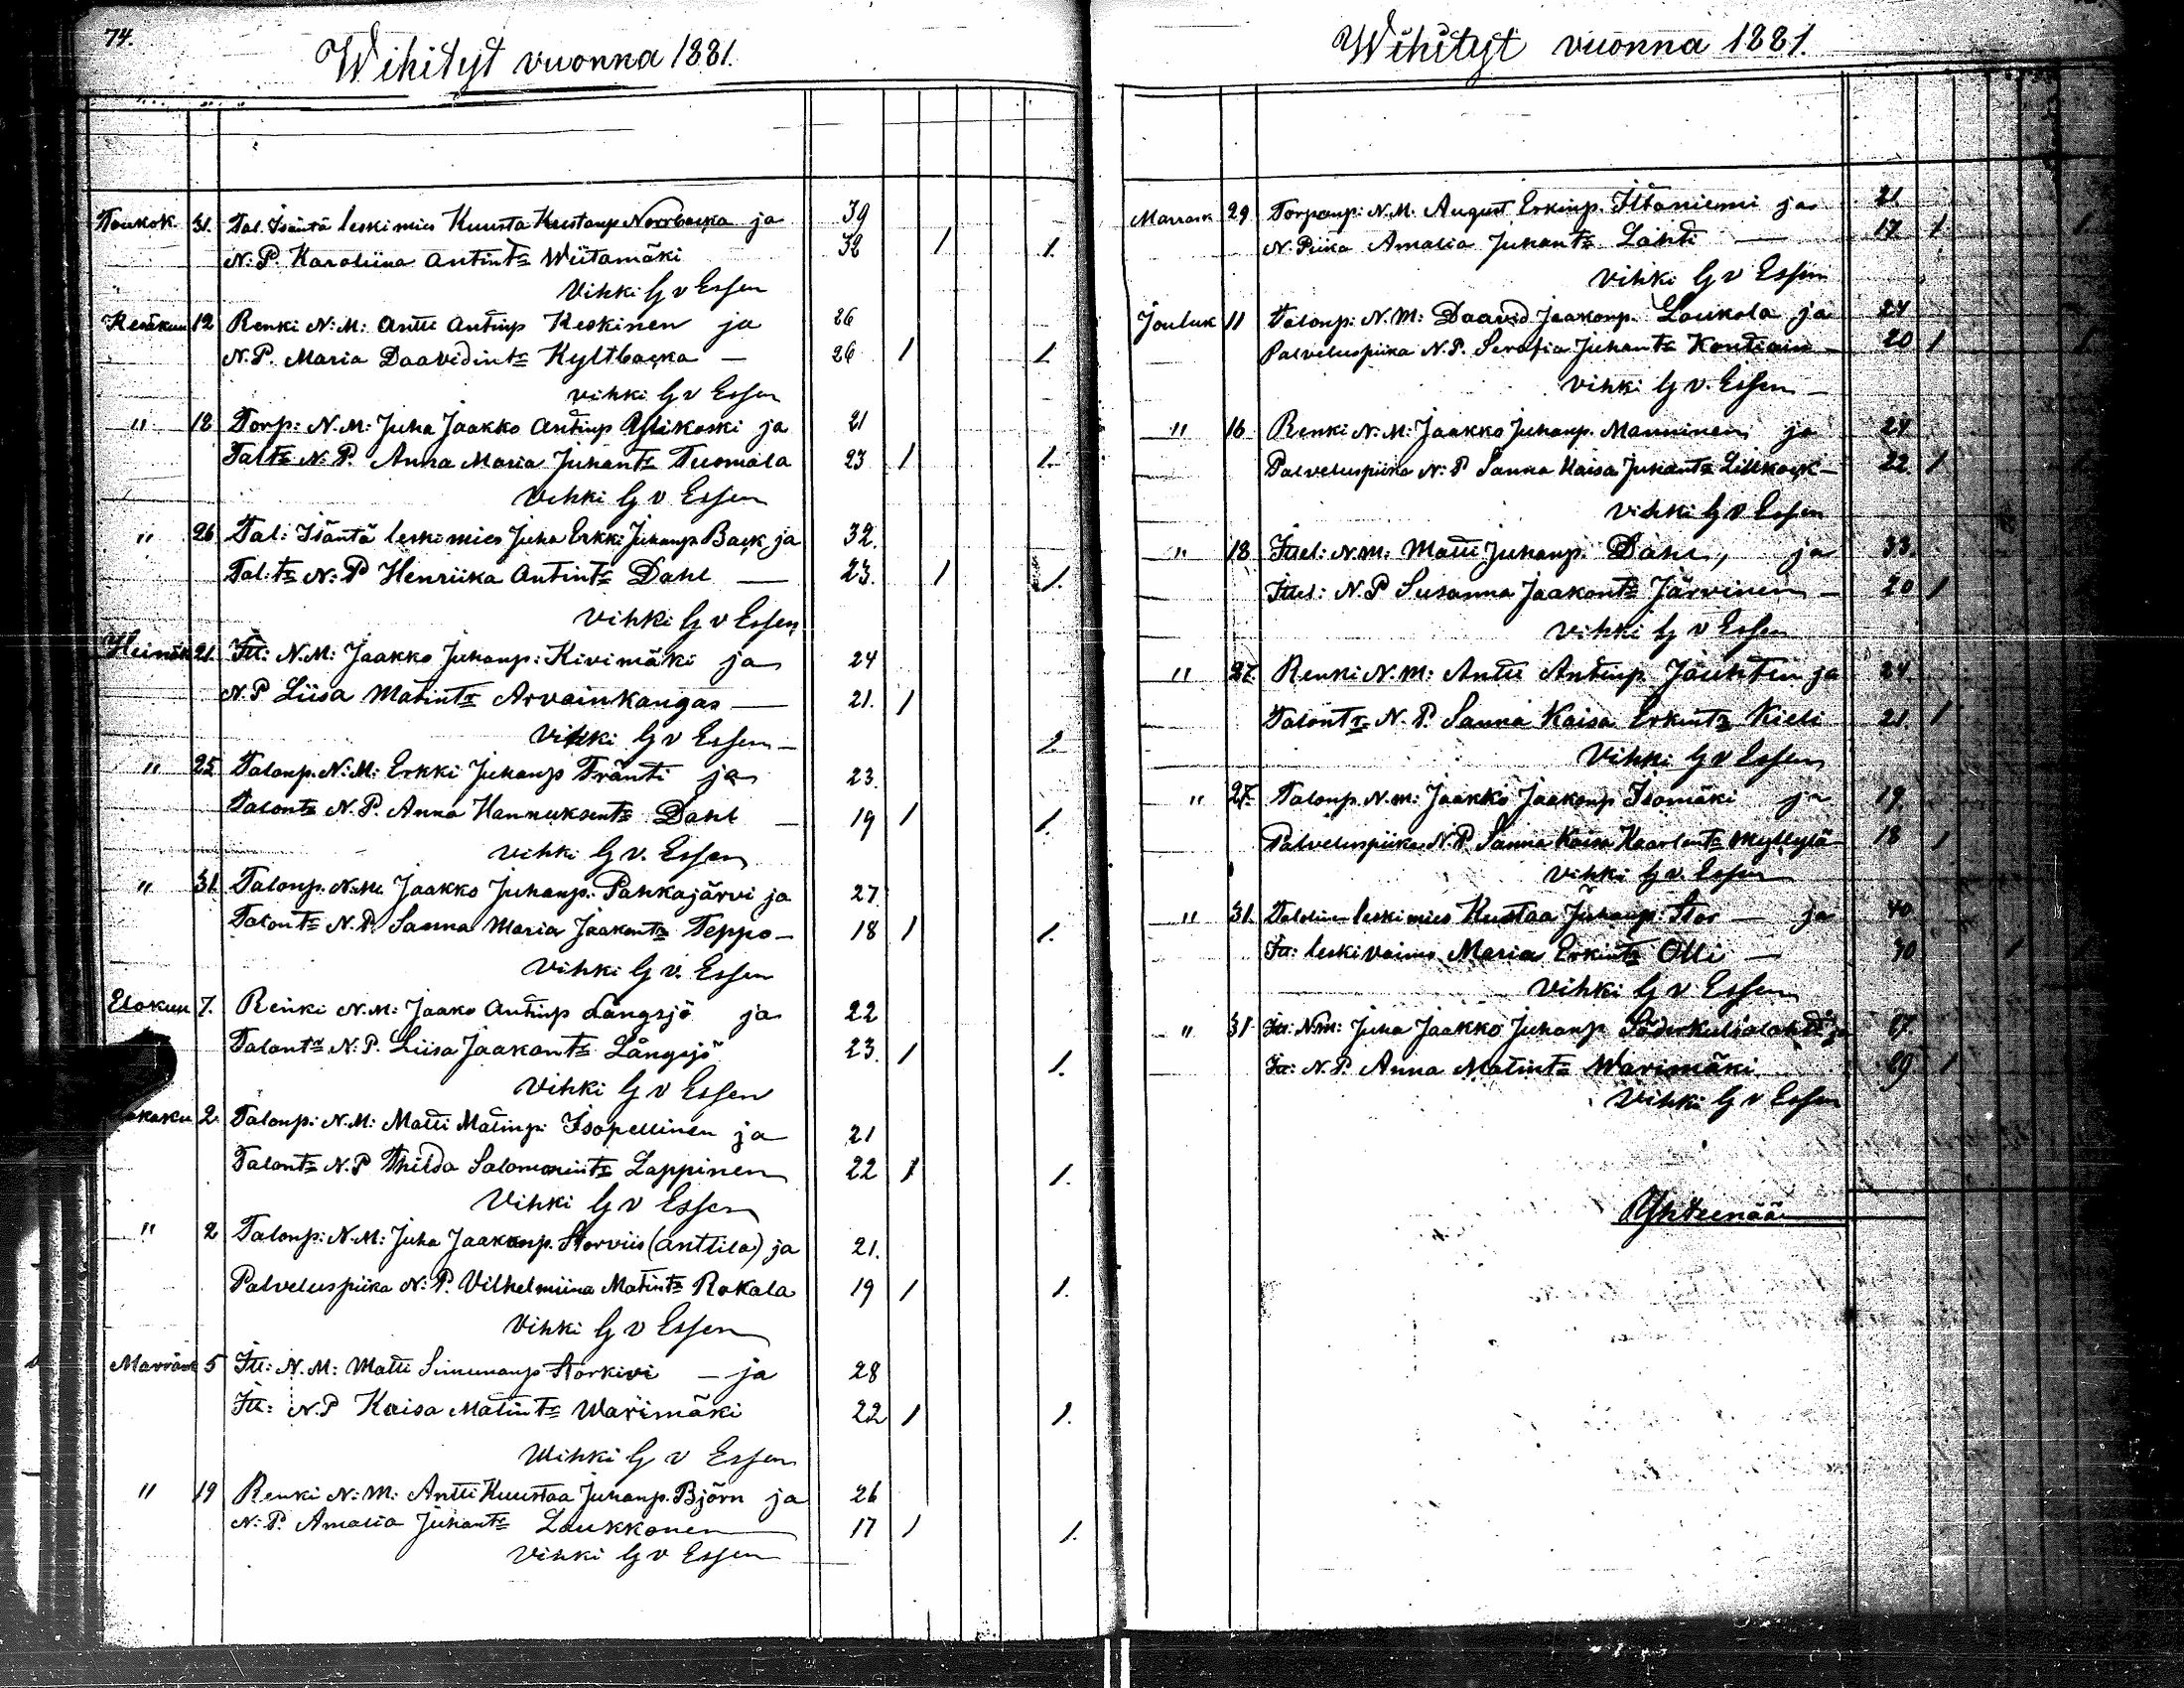 74.
Wihityt vuonna 1881.
Toukok. 31. Tal. Isäntä leskimies Kuusta Kustaap Norrbacka ja 39
N: P. Karoliina Antint: Wiitamäki 32 1 1.
Vihki G v Essen
Kesäkuu 12 Renki N: M: Antti Antinp Keskinen ja 26
N. P. Maria Daavidint: Kyltbacka — 26 1 1
vihki G v Essen
" 18 Torp: N. M: Juha Jaakko Antinp Ylikoski ja 21
Talt: N: P. Anna Maria Juhant: Tuomala 23 1 1.
Vihki G v Essen
" 26 Tal: Isäntä leskimies Juha Erkki Juhanp Back ja 32.
Tal: t: N: P Henriika Antint: Dahl — 23. 1 1.
Vihki G v Essen
Heinäk 21. Itt: N. M: Jaakko Juhanp: Kivimäki ja 24
N. P Liisa Matint: Arvainkangas — 21. 1
Vihki G v Essen — 2.
" 25 Talonp. N: M: Erkki Juhanp Fränti ja 23.
Talont: N. P. Anna Hannuksent: Dahl — 19 1 1.
vihki G v. Essen
" 31. Talonp. N: M. Jaakko Juhanp. Pahkajärvi ja 27
Talont: N. P. Sanna Maria Jaakont: Teppo — 18 1 1.
Vihki G v. Essen
Elokuu 7. Renki N. M: Jaako Antinp Långsjö ja 22
Talont: N: P. Liisa Jaakont: Långsjö 23. 1 1.
Vihki G v Essen
kaku 2. Talonp: N. M: Matti Matinp: Isopellinen ja 21
Talont: N. P Thilda Salomonint: Lappinen 22 1 1.
Vihki G v Essen
" 2 Talonp: N. M: Juha Jaakonp. Storviis (Anttila) ja 21.
Palveluspiika N: P. Vilhelmiina Matint: Rakala 19 1 1.
Vihki G v Essen
Marrask 5 Itt: N. M: Matti Simunanp Storkivi — ja 28
Itt: N. P Kaisa Matint: Warimäki 22 1 1.
Wihki G v Essen
" 19 Renki N: M: Antti Kuustaa Juhanp. Björn ja 26
N: P. Amalia Juhant: Laukkonen 17 1 1.
Vihki G v Essen
Wihityt vuonna 1881.
Marrask 29 Torpanp: N. M. August Erkinp. Iltaniemi ja 21.
N. Piika Amalia Juhant: Lahti — 17. 1. 1.
Vihki G v Essen
Jouluk 11 Talonp: N. M: Daavid Jaakonp. Laukola ja 24
Palveluspiika N. P. Serafia Juhant: Kontiain — 20 1 1.
vihki G v. Essen —
" 16 Renki N. M: Jaakko Juhanp. Manninen ja 24
Palveluspiika N: P Sanna Kaisa Juhant: Lillkack — 22. 1
vihki G v Essen
" 18 Ittel: N. M: Matti Juhanp. Dahl, ja 33.
Ittel: N. P Susanna Jaakont: Järvinen — 20 1
Vihki G v Essen
" 27. Renki N. M: Antti Antinp. Jauhtin ja 24.
Talont: N. P. Sanna Kaisa Erkint: Kieli 21. 1
Vihki G v Essen
" 27. Talonp. N. M: Jaakko Jaakonp Isomäki ja 19.
Palveluspiika N. P. Sanna Kaisa Kaarlent: Myllylä 18 1
vihki G v. Essen
" 31. leskimies Kustaa Juhanp: Stor — ja 40
Itt: leskivaimo Maria Erkint: Olli — 40 1
Vihki G v Essen
" 31 Itt: N. M: Juha Jaakko Juhanp ja 27
Itt: N. P. Anna Matint: Warimäki 29 1
Vihki G v Essen
Yhteensä